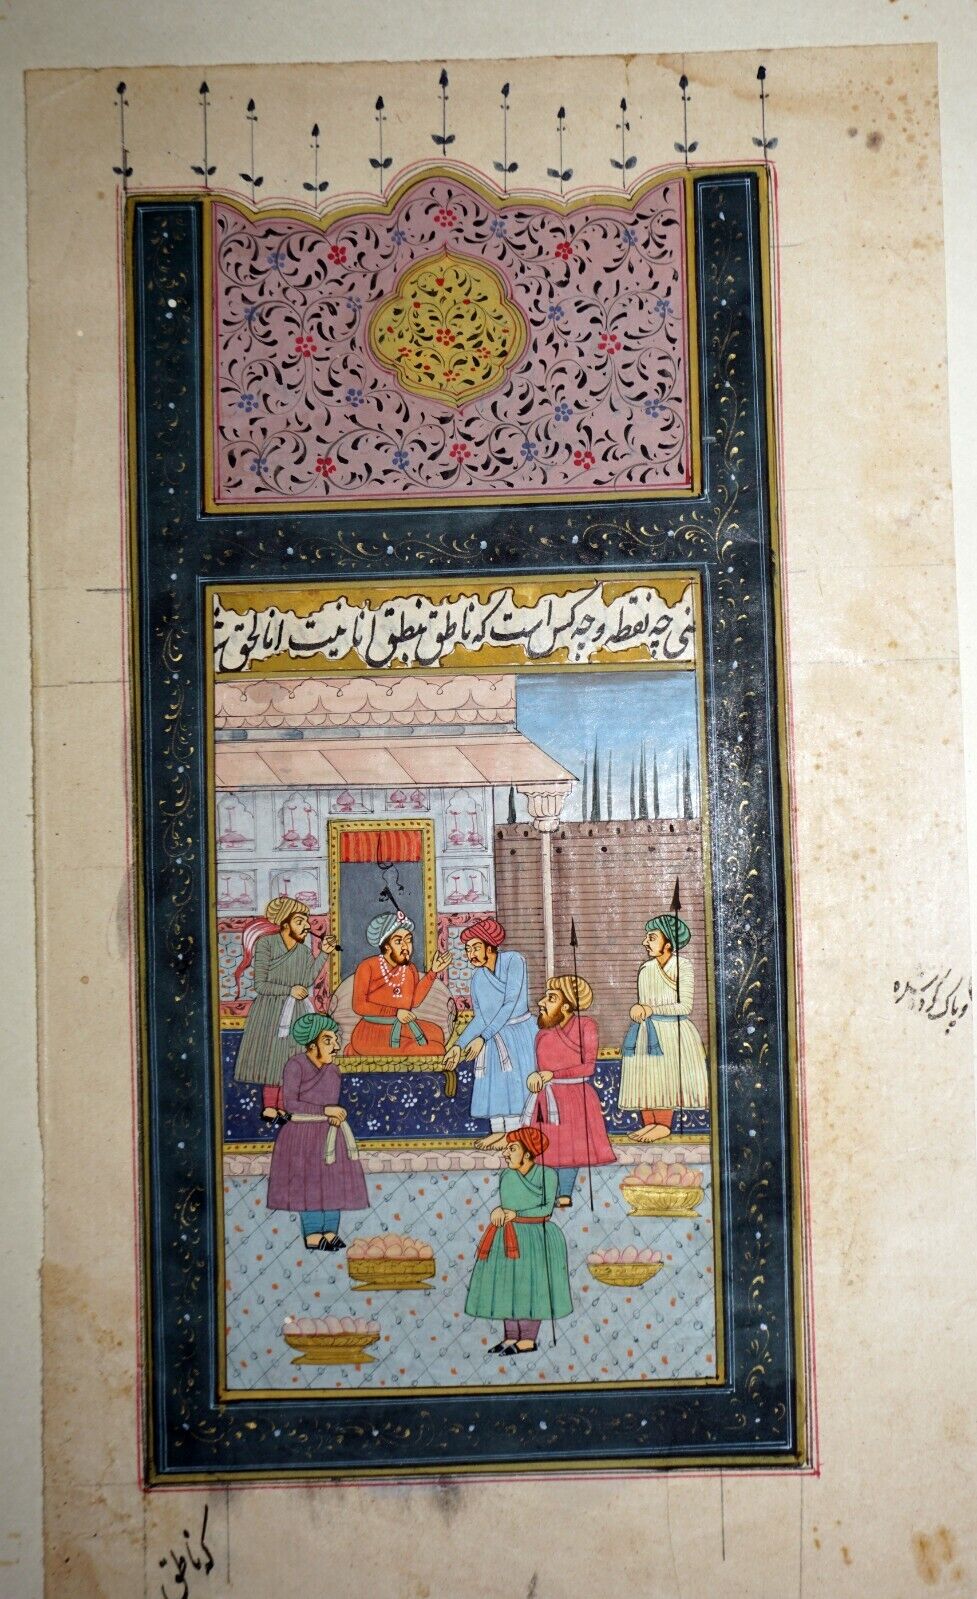 چه نقطه و چه کس است که ناطق بنطق انانیت اناالحق
و پاک کرده شده
که ناطق